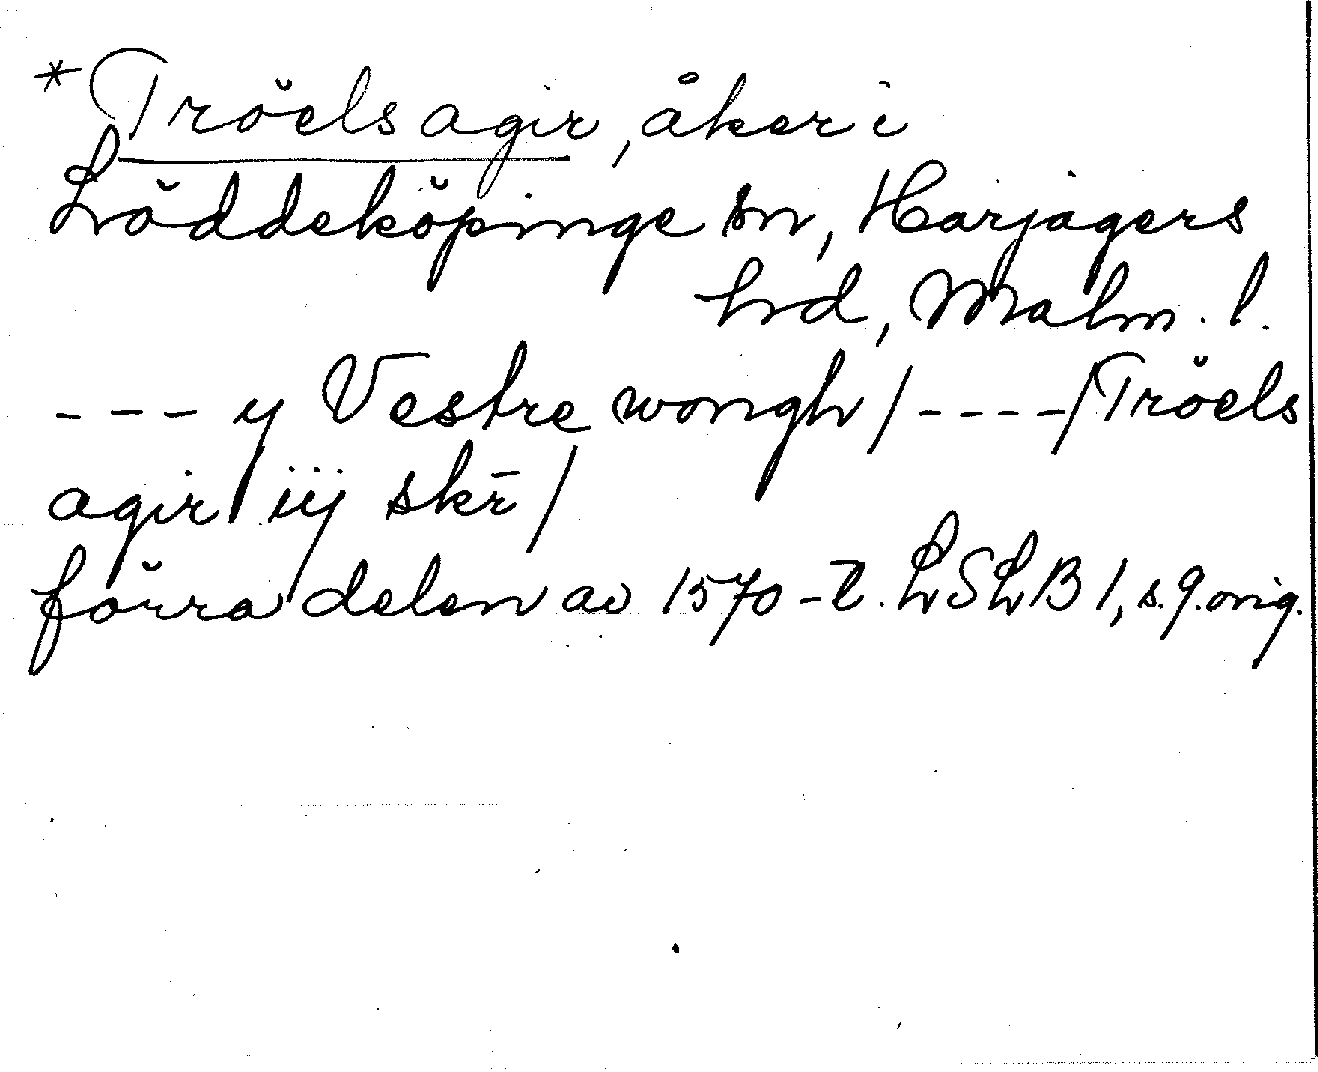 *Tröels agir, åker i
Löddeköpinge sn, Harjagers
hrd, Malm. l.
--- y Vestre wongh / ----/ Tröels
agir / iij skr̄ /
förra delen av 1570-t. LSLB 1, s.9. orig.